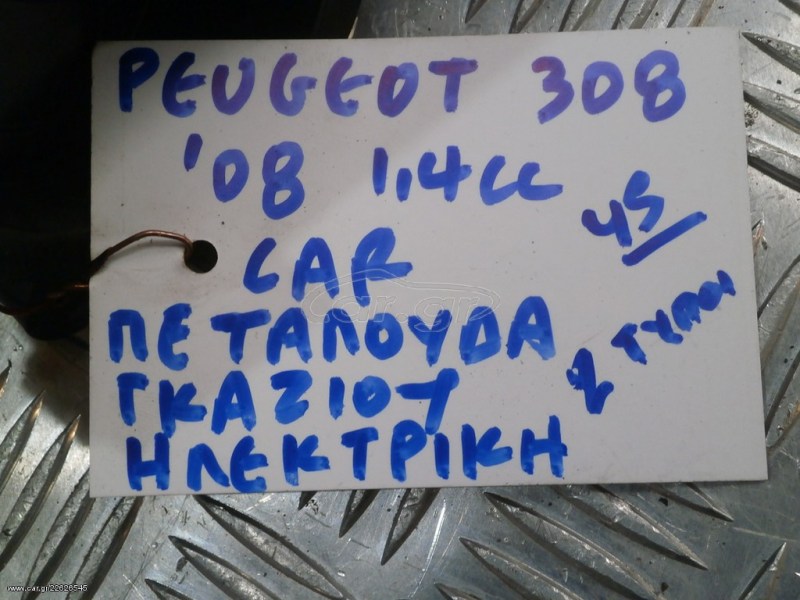 PEUGEOT 308
'08 1,4cc
45
CAR
2 ΤΥΠΟΙ
ΠΕΤΑΛΟΥΔΑ
ΓΚΑΖΙΟΥ
ΗΛΕΚΤΡΙΚΗ
car.gr
www.car.gr/22626545